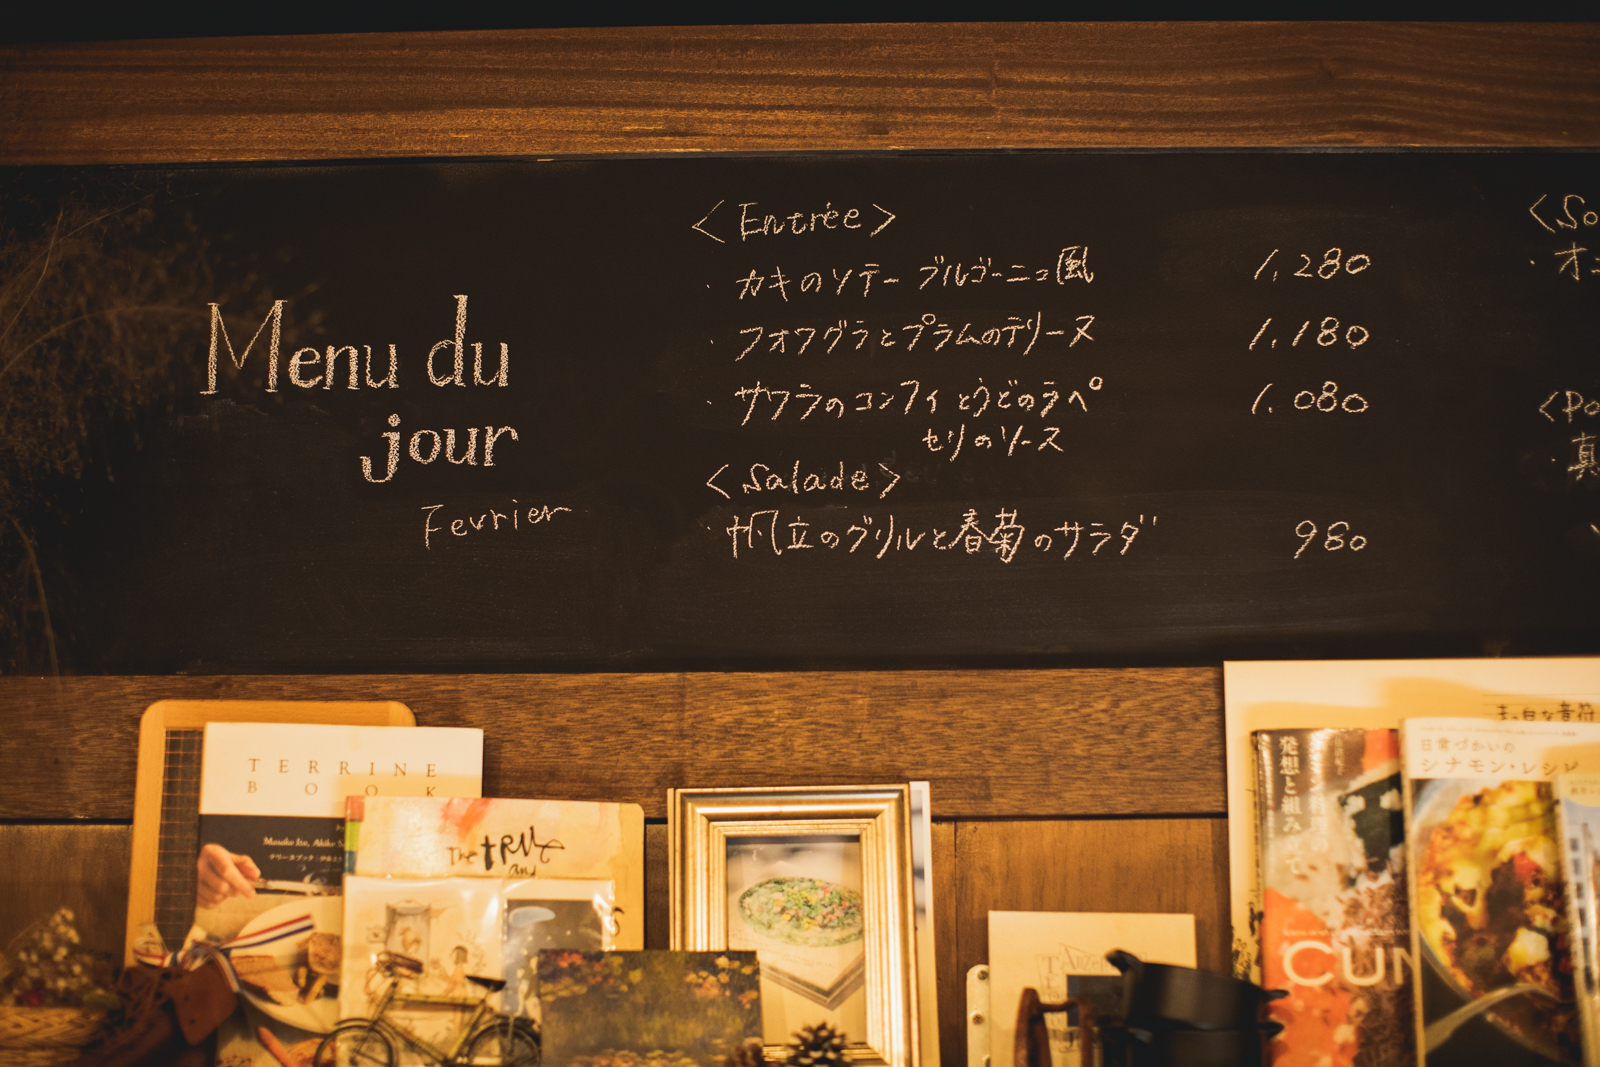 Menu du
jour
Fevrier
<Entrée>
・カキのソテー ブルゴーニュ風 1,280
・フォワグラとプラムのテリーヌ 1,180
・サワラのコンフィとうどのラペ 1,080
セリのソース
<Salade>
・帆立のグリルと春菊のサラダ 980
<So
・オニ
<Po
・真
TERRINE
BOOK
The tRUe
and
発想と組み立て
CUN
日常づかいの
シナモン・レシピ